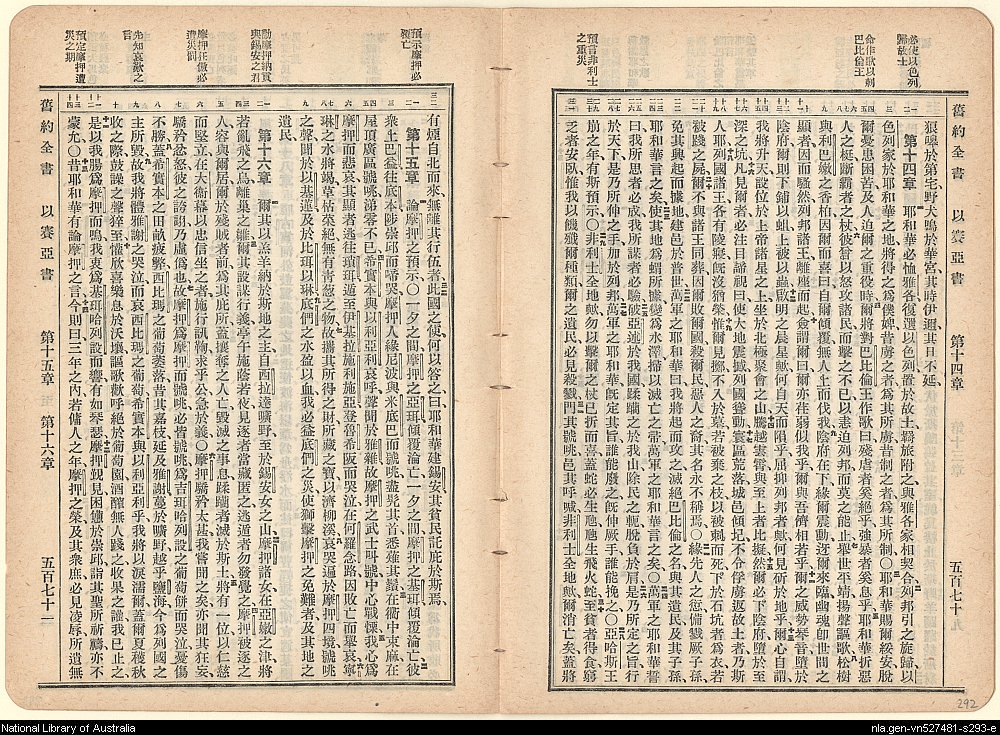 必使以色列歸故土
命作歌以刺巴比倫王
預言非利士之重災
舊約全書 以賽亞書 第十四章
狼嘷於第宅野犬鳴於華宮其時伊邇其日不延
第十四章 耶和華必恤雅各復選以色列置於故土羇旅附之與雅各家相契合列邦引之旋歸以
色列家於耶和華之地將得之為僕婢昔虜之者為其所虜昔制之者為其所制〇耶和華賜爾綏安脫
爾憂患困苦及人迫爾之重役時爾將對巴比倫王作歌曰殘虐者竟絕乎強暴者竟息乎耶和華折惡
人之梃斷霸者之杖彼嘗以怒攻諸民而擊之不已以恚迫列邦而莫之能止舉世平靖揚聲謳歌松樹
與利巴嫩之香柏因爾而喜曰自爾傾覆無人上而伐我陰府在下緣爾震動迓爾來臨幽魂卽世間之
顯者因而騷然列邦諸王離座而起僉謂爾曰爾亦荏弱似我乎爾與吾儕相若乎爾之威勢琴音墮於
陰府爾下則下鋪以蛆上被以蟲啟明之晨星歟何自天而隕乎屈抑列邦者歟何見斫於地乎爾心自謂
我將升天設位於上帝諸星之上坐於北極聚會之山騰越雲霄與至上者比擬然爾必下陰府墮於至
深之坑凡見爾者必注目諦視曰使大地震撼列國聳動寰區荒落城邑傾圮不合俘虜返故土者乃斯
人耶列國諸王各有陵寢旣沒猶榮惟爾見擲不入於墓若被棄之枝以被刺而死下於石坑者為衣若
被踐之屍爾不與諸王同葬因爾敗爾國殺爾民愚人之裔其名永不稱焉〇緣先人之愆備戮厥子孫
免其興起而據地建邑於普世萬軍之耶和華曰我將起而攻之滅絕巴比倫之名與其遺民及其子孫
耶和華言之矣使其地為蝟所據變為水澤掃以滅亡之帚萬軍之耶和華言之矣〇萬軍之耶和華誓
曰我所思者必成我所謀者必驗破亞述於我國蹂躪之於我山除民之軛脫負於肩是乃所定之旨行
於天下是乃所伸之手加於列邦萬軍之耶和華旣定其旨誰能廢之旣伸厥手誰能挽之〇亞哈斯王
崩之年有斯預示〇非利士全地歟勿以擊爾之杖已折而喜蓋蛇必生虺虺生飛火蛇至貧者得食窮
乏者安臥惟我以饑殲爾種類爾之遺民必見殺戮門其號咷邑其呼喊非利士全地歟爾消亡矣蓋將
預示摩押必翦亡
勸摩押納貢與錫安之君
摩押狂傲必遭災罰
先知哀歎之言
預定摩押遭災之期
有煙自北而來無離其行伍者此國之使何以答之曰耶和華建錫安其貧民託庇於斯焉
第十五章 論摩押之預示〇一夕之間摩押之亞珥傾覆淪亡一夕之間摩押之基珥傾覆淪亡彼
眾上巴益往底本陟崇邱而啼哭摩押人緣尼波與米底巴而號咷盡髠其首悉薙其鬚在衢中束麻在
屋頂廣區號咷涕零不已希實本與以利亞利哀呼聲聞於雅雜故摩押之武士叫號中心戰慄我心為
摩押而悲哀其顯者逃往瑣珥遁至伊基拉施利施亞登魯希阪而哭泣在何羅念路因敗亡而舉哀寧
琳之水將竭草枯菜絕無有青葱之物故攜其所得之財所藏之寶以濟柳溪哀哭遍於摩押四境號咷
之聲聞於以基蓮及於比珥以琳底們之水盈以血我必益底們之災使獅擊摩押之免難者及其地之
遺民
第十六章 爾其以羔羊納於斯地之主自西拉達曠野至於錫安女之山摩押諸女在亞嫩之津將
若亂飛之鳥離巢之雛爾其設謀行義亭午施蔭若夜見逐者當藏匿之逃遁者勿發覺之摩押被逐之
人容與爾居爾於殘賊者前為其庇所蓋攘奪之人亡毀滅之事息蹂躪者滅於斯土將有一位以仁慈
而堅立在大衞幕以忠信坐之者施行訊鞫求乎公急於義〇摩押驕矜太甚我嘗聞之矣亦聞其狂妄
驕矜忿怒彼之誇詡乃虛偽也故摩押為摩押而號咷必皆號咷為吉珥哈列設之葡萄餅而哭泣憂傷
不勝蓋希實本之田畝疲弊西比瑪之葡萄萎落昔其嘉枝延及雅謝蔓於曠野越乎鹽海今為列國之
主所毀故我將體雅謝之哭泣而哀西比瑪之葡萄希實本與以利亞利乎我將以淚濡爾蓋爾夏穫秋
收之際鼓譟之聲猝至懽欣喜樂息於沃壤謳歌歡呼絕於葡萄園酒醡無人踐之收果之讙我已止之
是以我腸為摩押而鳴我衷為基珥哈列設而響有如琴瑟摩押覬見困憊於崇邱詣其聖所祈禱亦不
蒙允〇昔耶和華有論摩押之言今則曰三年之內若傭人之年摩押之榮及其眾庶必見凌辱所遺無
舊約全書 以賽亞書 第十五章 至 第十六章
292
National Library of Australia
nla.gen-vn527481-s293-e